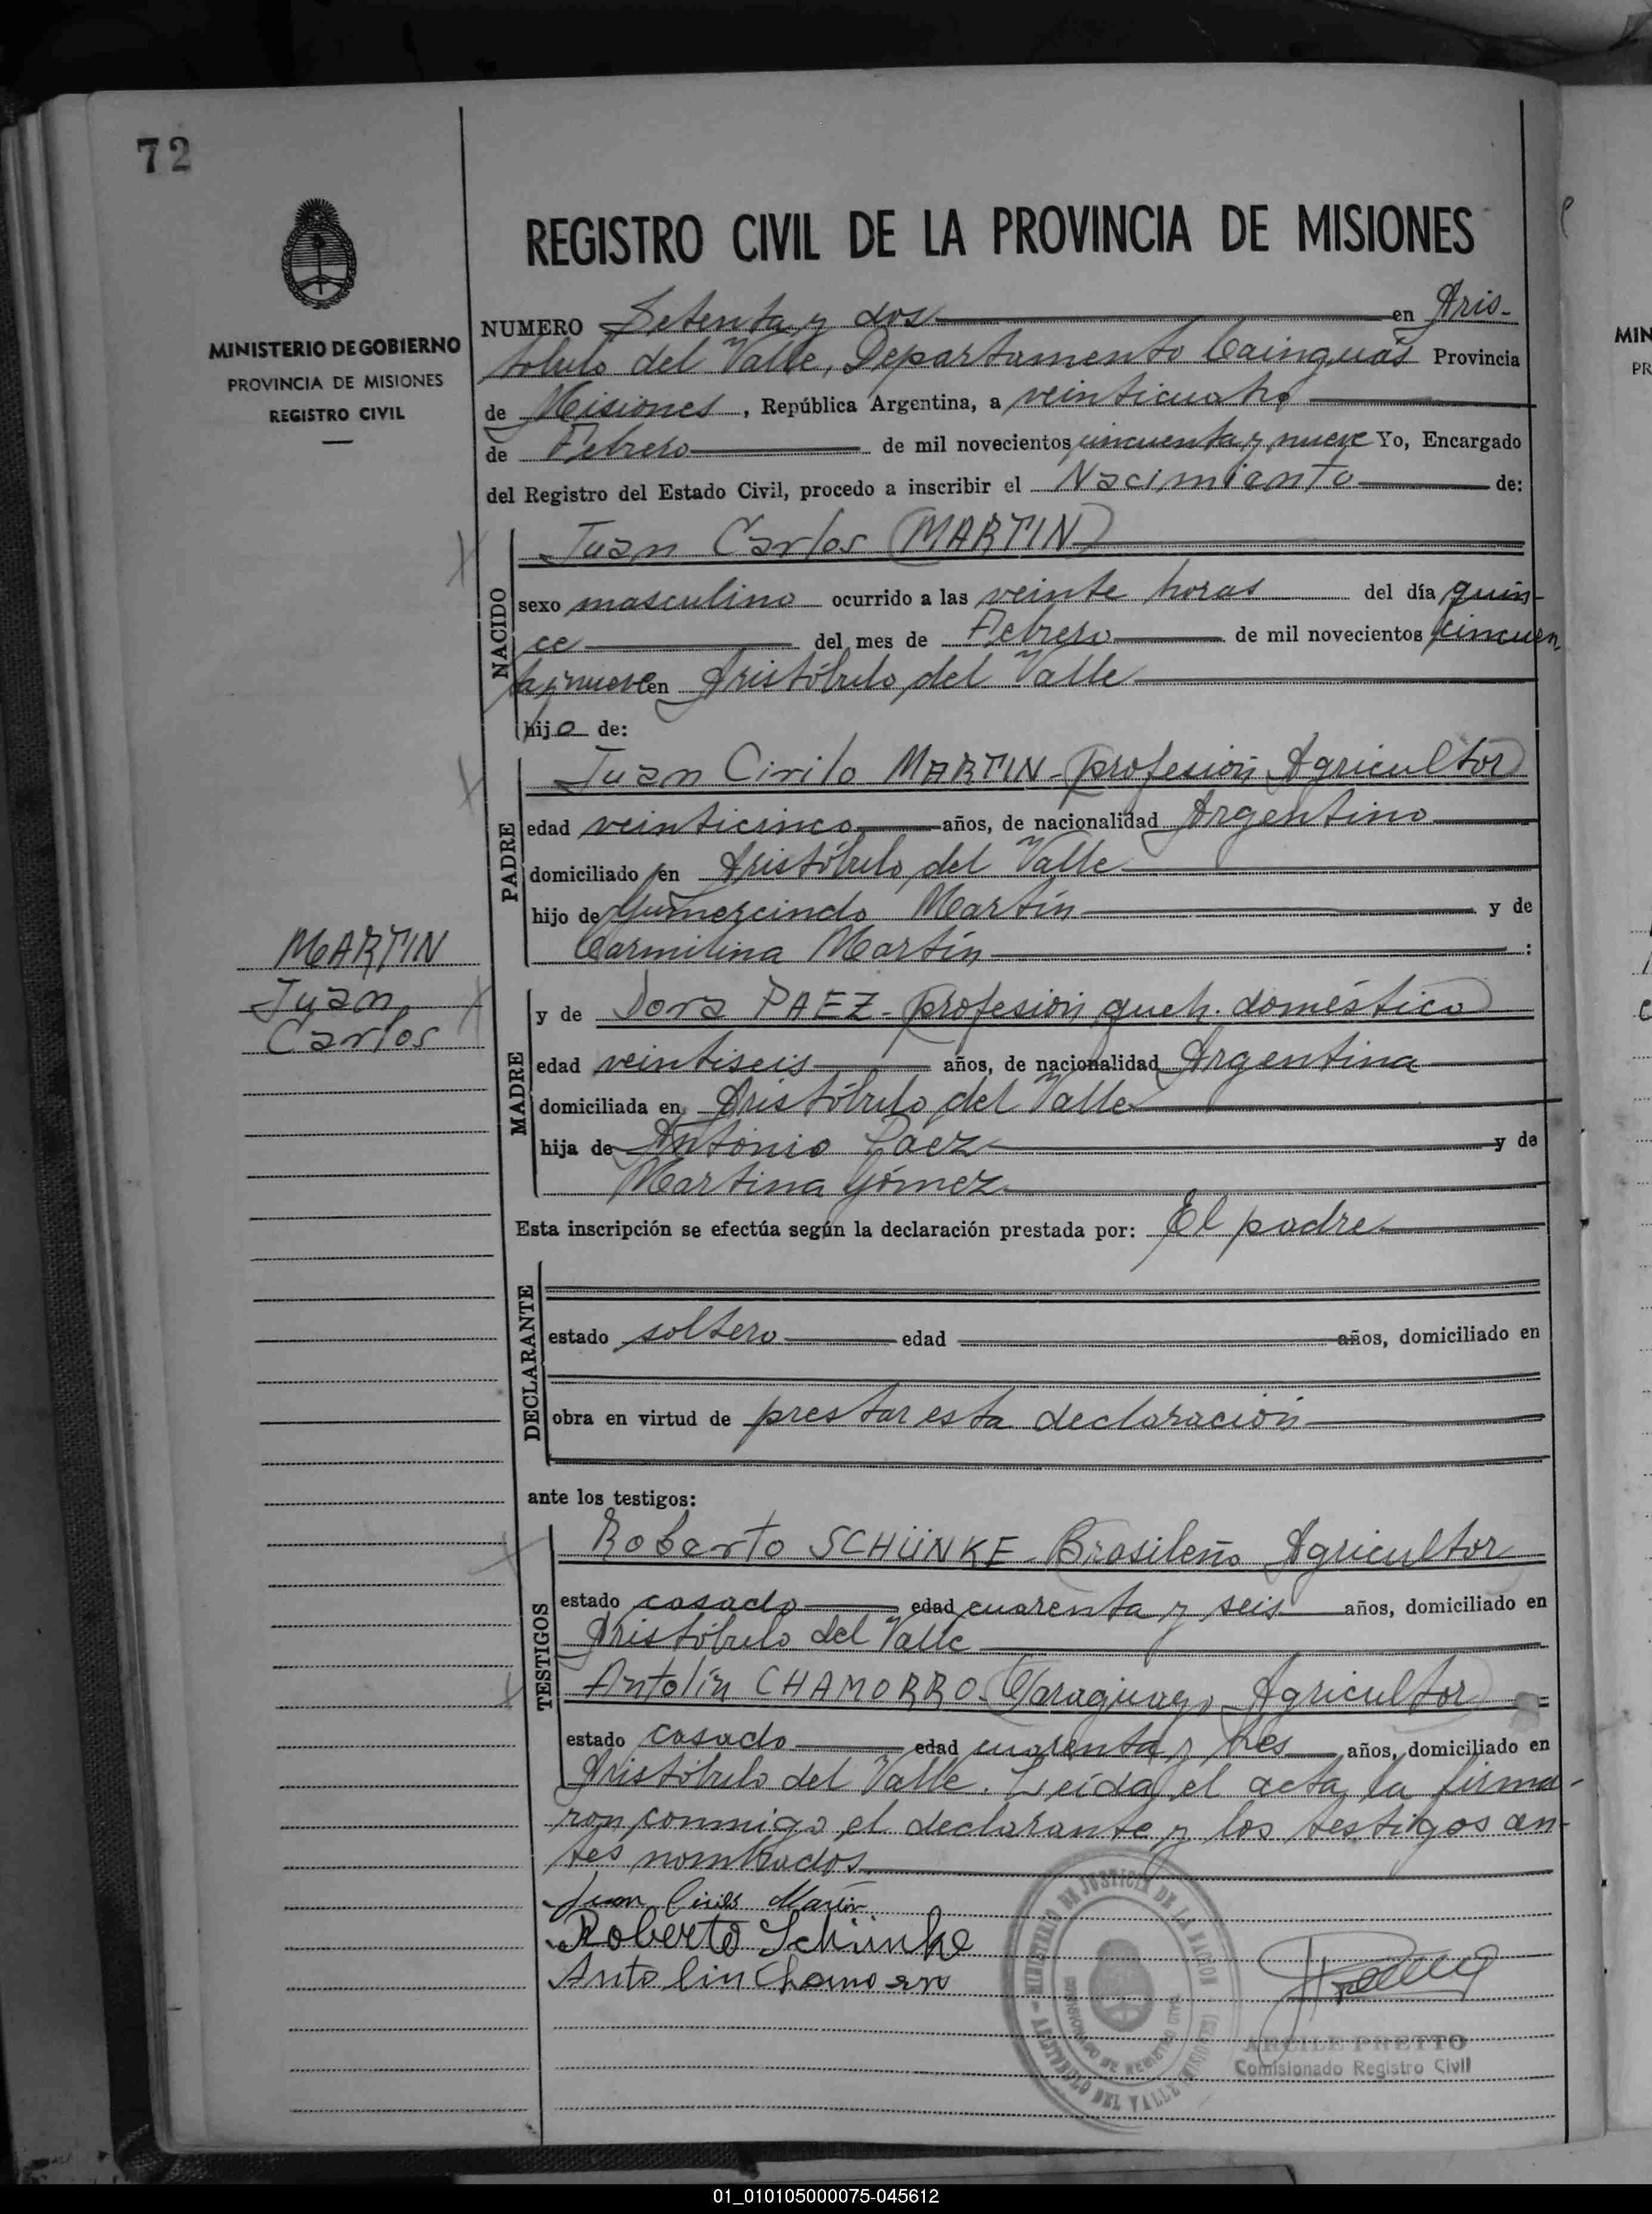 72
MINISTERIO DE GOBIERNO
PROVINCIA DE MISIONES
REGISTRO CIVIL
REGISTRO CIVIL DE LA PROVINCIA DE MISIONES
NUMERO Setenta y dos en Aris-
tobulo del Valle, Departamento Cainguás Provincia
de Misiones, República Argentina, a veinticuatro
de Febrero de mil novecientos cincuenta y nueve Yo, Encargado
del Registro del Estado Civil, procedo a inscribir el Nacimiento de:
NACIDO
Juan Carlos (MARTIN)
sexo masculino ocurrido a las veinte horas del día quin-
ce del mes de Febrero de mil novecientos cincuen
ta y nueve en Aristóbulo del Valle
hijo de:
PADRE
Juan Cirilo MARTIN - (profesión Agricultor)
edad veinticinco años, de nacionalidad Argentino
domiciliado en Aristóbulo del Valle
hijo de Gumercindo Martín y de
Carmilina Martín :
MARTIN
Juan
Carlos
MADRE
y de Dora PAEZ - (profesión queh. doméstico)
edad veintiseis años, de nacionalidad Argentina
domiciliada en Aristóbulo del Valle
hija de Antonio Páez y de
Martina Gómez
Esta inscripción se efectúa según la declaración prestada por: El padre
DECLARANTE
estado soltero edad años, domiciliado en
obra en virtud de prestar esta declaración
ante los testigos:
TESTIGOS
Roberto SCHÜNKE - (Brasileño Agricultor
estado casado edad cuarenta y seis años, domiciliado en
Aristóbulo del Valle
Antolín CHAMORRO - (Paraguayo, Agricultor)
estado casado edad cuarenta y tres años, domiciliado en
Aristóbulo del Valle. Leída el acta la firma-
ron conmigo el declarante y los testigos an-
tes nombrados.
Juan Cirilo Martin
Roberto Schünke
Antolin Chamorro
MINISTERIO DE JUSTICIA DE LA NACION
ARISTOBULO DEL VALLE (MISIONES)
ARCILE PRETTO
Comisionado Registro Civil
01_010105000075-045612